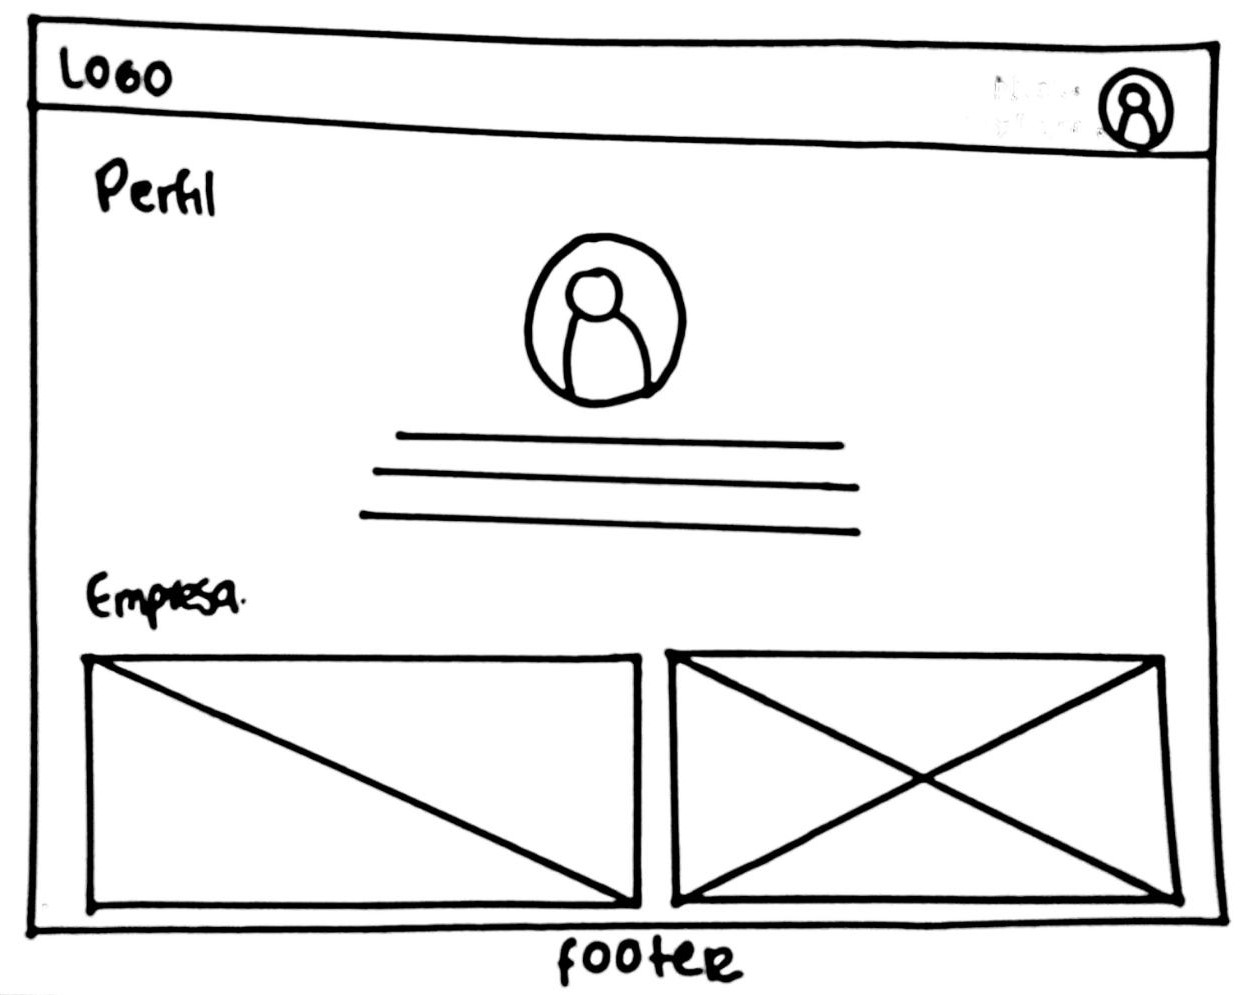 LOGO
Perfil
Empresa.
footer